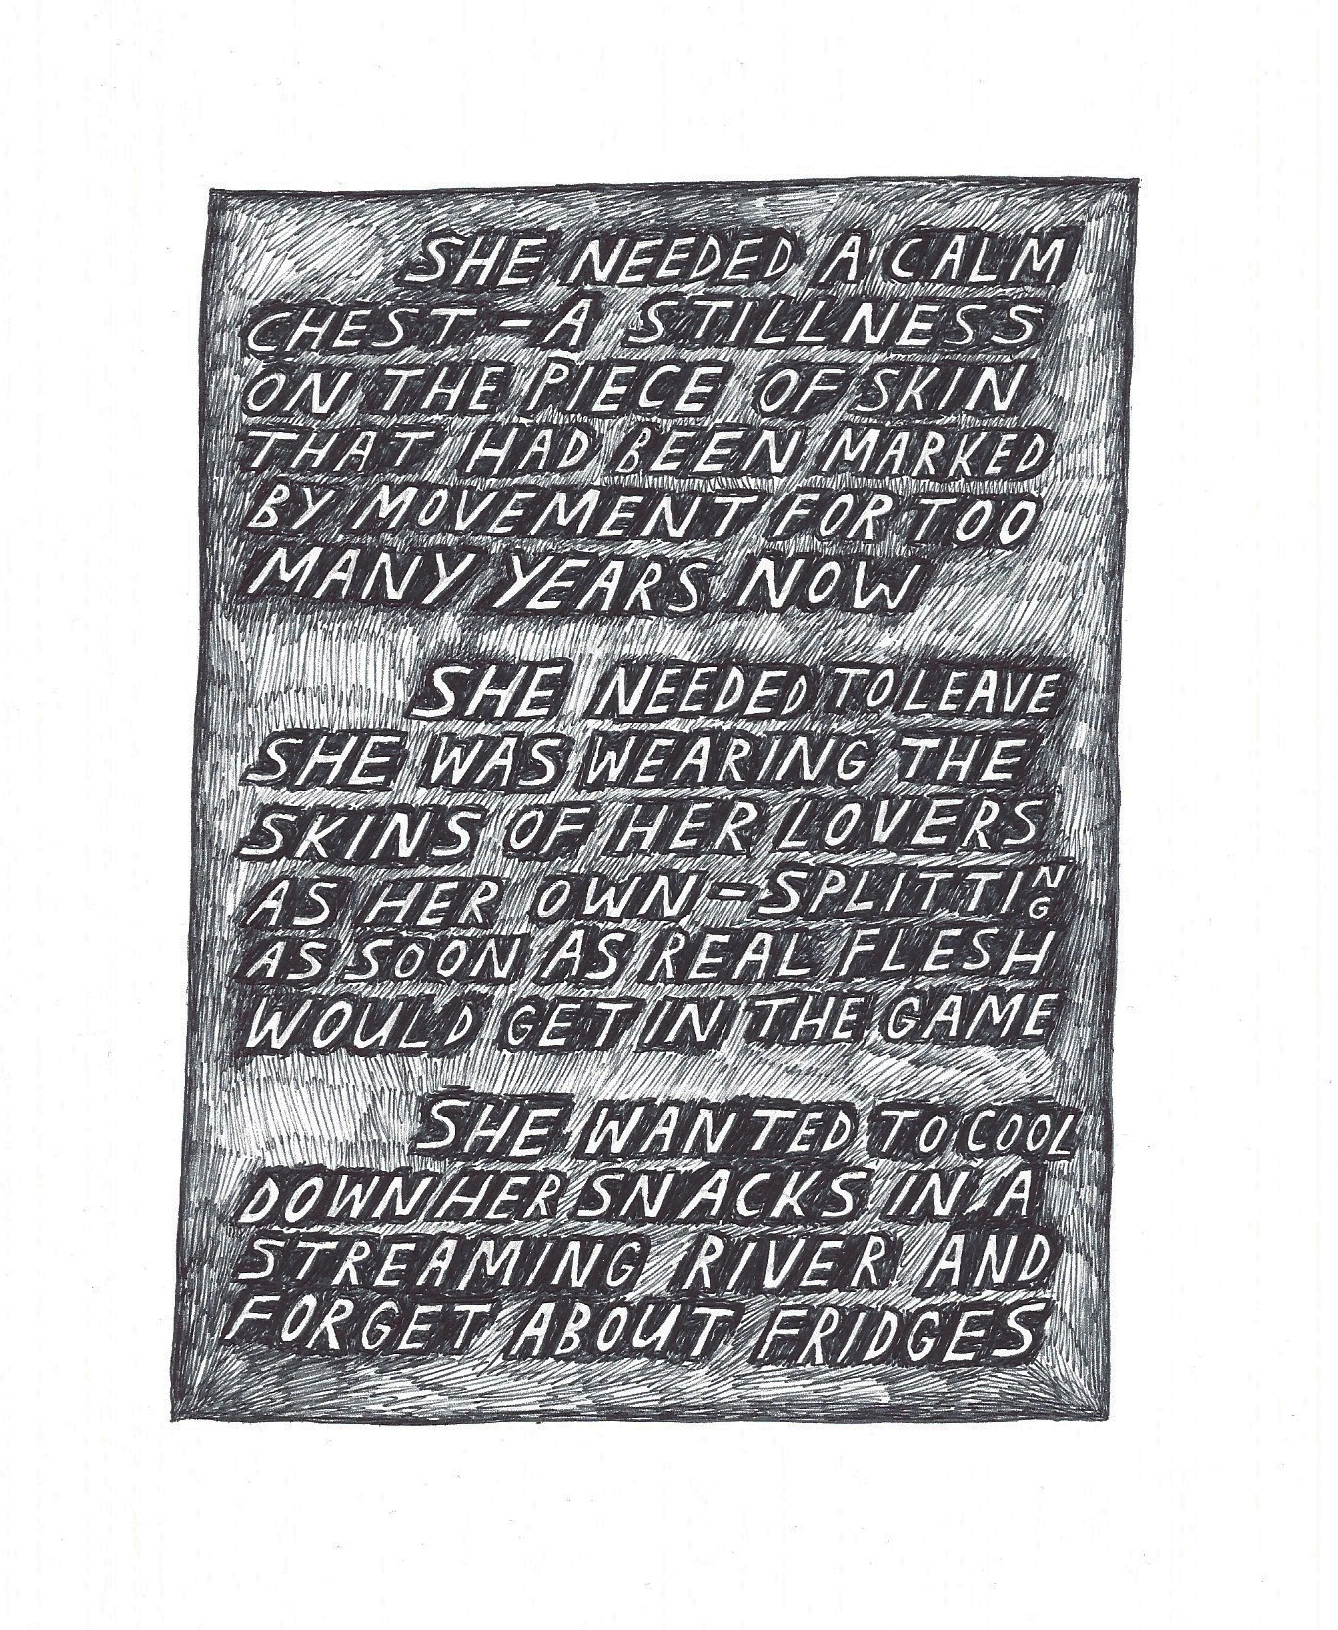 SHE NEEDED A CALM
CHEST - A STILLNESS
ON THE PIECE OF SKIN
THAT HAD BEEN MARKED
BY MOVEMENT FOR TOO
MANY YEARS NOW
SHE NEEDED TO LEAVE
SHE WAS WEARING THE
SKINS OF HER LOVERS
AS HER OWN - SPLITTING
AS SOON AS REAL FLESH
WOULD GET IN THE GAME
SHE WANTED TO COOL
DOWN HER SNACKS IN A
STREAMING RIVER AND
FORGET ABOUT FRIDGES